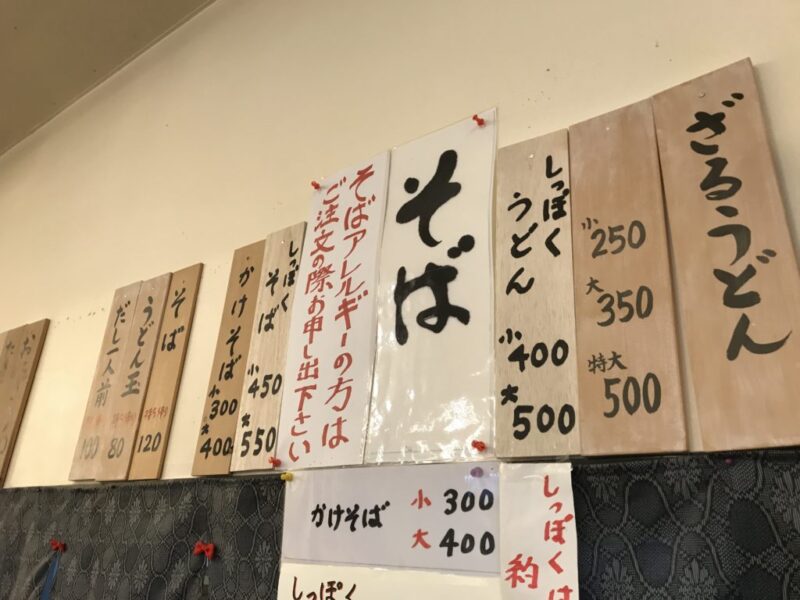 ざるうどん
小 250
大 350
特大 500
しっぽく
うどん
小 400
大 500
そば
そばアレルギーの方は
ご注文の際お申し出下さい
しっぽく
そば
小 450
大 550
かけそば
小 300
大 400
そば
120
うどん玉
80
だし一人前
100
かけそば
小 300
大 400
しっぽくは
約
しっぽく